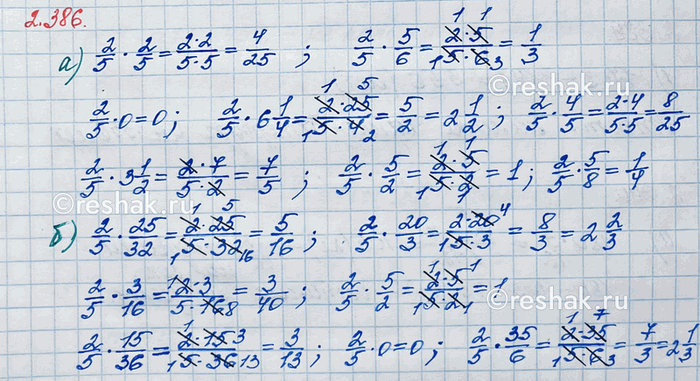 2.386.
а) 2/5 · 2/5 = 2·2/5·5 = 4/25 ; 2/5 · 5/6 = 2·5/5·6 = 1/3
2/5 · 0 = 0; 2/5 · 6 1/4 = 2·25/5·4 = 5/2 = 2 1/2 ; 2/5 · 4/5 = 2·4/5·5 = 8/25
2/5 · 3 1/2 = 2·7/5·2 = 7/5 ; 2/5 · 5/2 = 2·5/5·2 = 1 ; 2/5 · 5/8 = 1/4
б) 2/5 · 25/32 = 2·25/5·32 = 5/16 ; 2/5 · 20/3 = 2·20/5·3 = 8/3 = 2 2/3
2/5 · 3/16 = 2·3/5·16 = 3/40 ; 2/5 · 5/2 = 2·5/5·2 = 1
2/5 · 15/36 = 2·15/5·36 = 3/13 ; 2/5 · 0 = 0 ; 2/5 · 35/6 = 2·35/5·6 = 7/3 = 2 1/3
reshak.ru